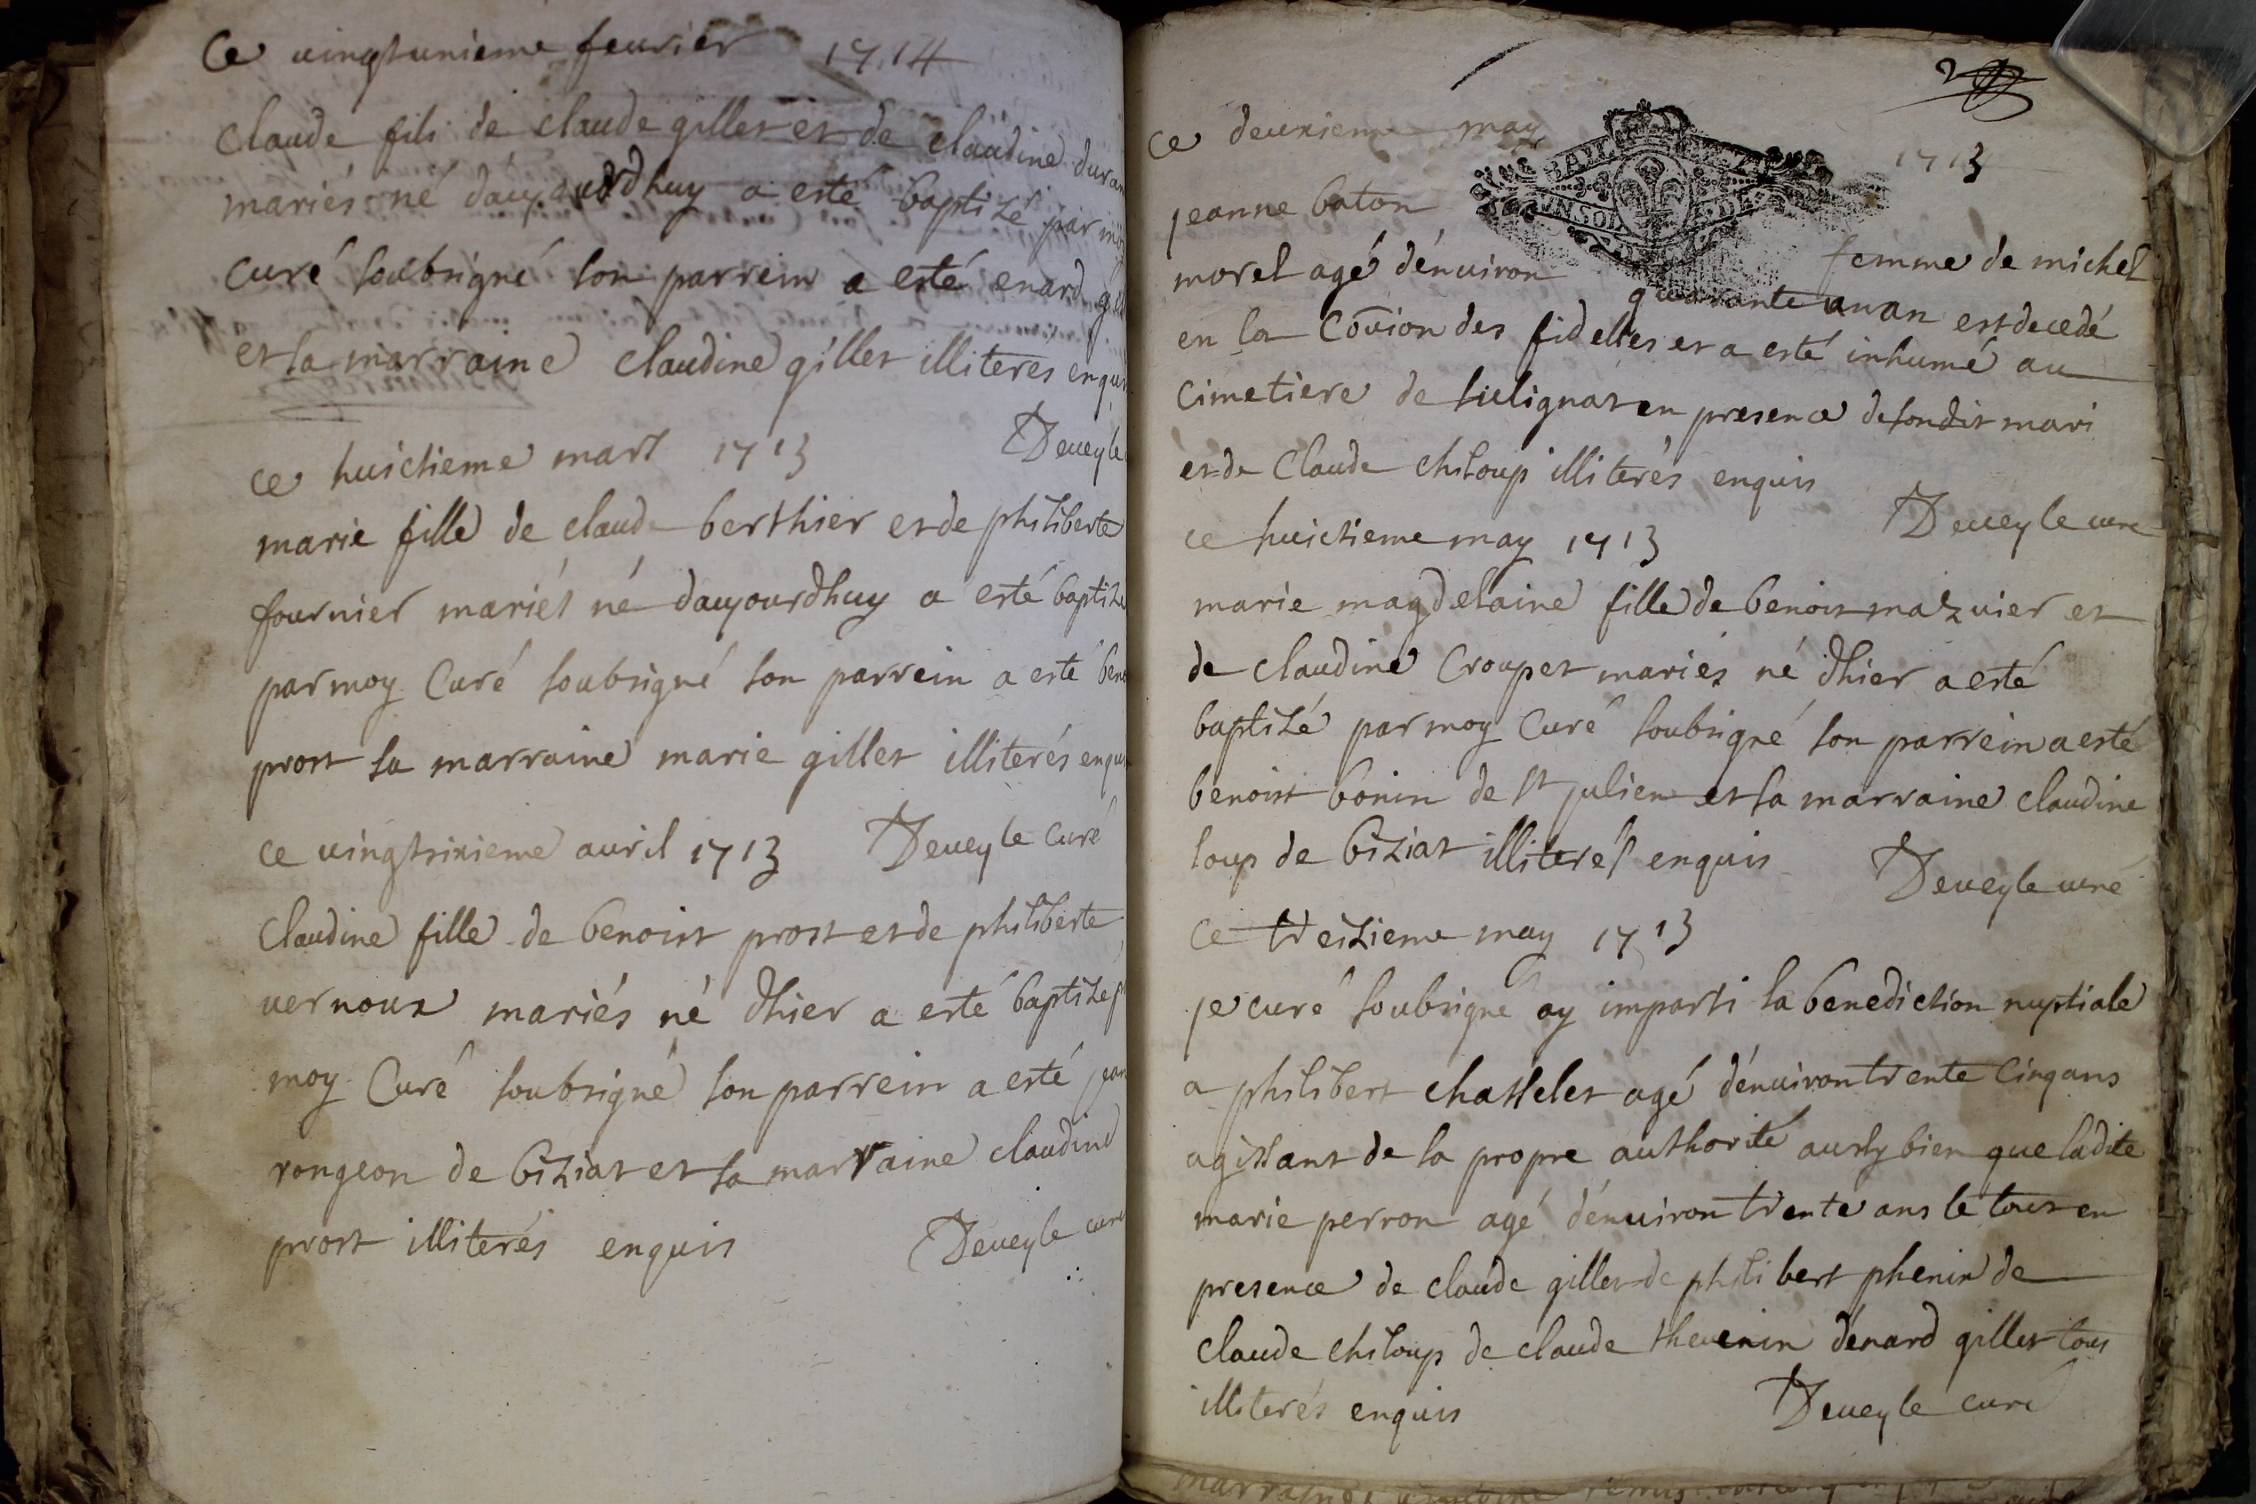 Ce vingtunieme feurier 1714
Claude fils de claude gillet et de claudine duran
mariés né daujourdhuy a esté baptizé par moy
Curé soubsigné son parrein a esté enard gill
et sa marraine claudine gillet illiteres enquis
ce huictieme mars 1713 Deueyle
marie fille de claude berthier et de philiberte
fournier mariés né daujourdhuy a esté baptizé
par moy Curé soubsigné son parrein a esté ben
prost sa marraine marie gillet illiterés enquis
ce uingtsixieme auril 1713 Deueyle curé
Claudine fille de benoist prost et de philiberte
uernoux mariés né dhier a esté baptizé p
moy Curé soubsigné son parrein a esté jean
rongeon de biziat et sa marraine claudine
prost illiterés enquis Deueyle curé
ce deuxieme may 1713
jeanne baton femme de michel
morel agé dénuiron quarante anan est decedé
en la Coūion des fidelles et a esté inhumé au
Cimetiere de sulignat en presence de sondit mari
et de Claude chiloup illiterés enquis
Deueyle curé
ce huictieme may 1713
marie magdelaine fille de benoit mazuier et
de claudine Croupet mariés né dhier a esté
baptizé par moy Curé soubsigné son parrein a esté
benoist bonin de st julien et sa marraine claudine
loup de biziat illiterés enquis
Deueyle curé
Ce treizieme may 1713
je curé soubsigné ay imparti la benediction nuptiale
a philibert chasselet agé dénuiron trente cinq ans
agissant de sa propre authorité aussy bien que ladite
marie perron agé dénuiron trente ans le tout en
presence de claude gillet de philibert phenin de
claude chiloup de claude theuenin dénard gillet tous
illiterés enquis Deueyle curé